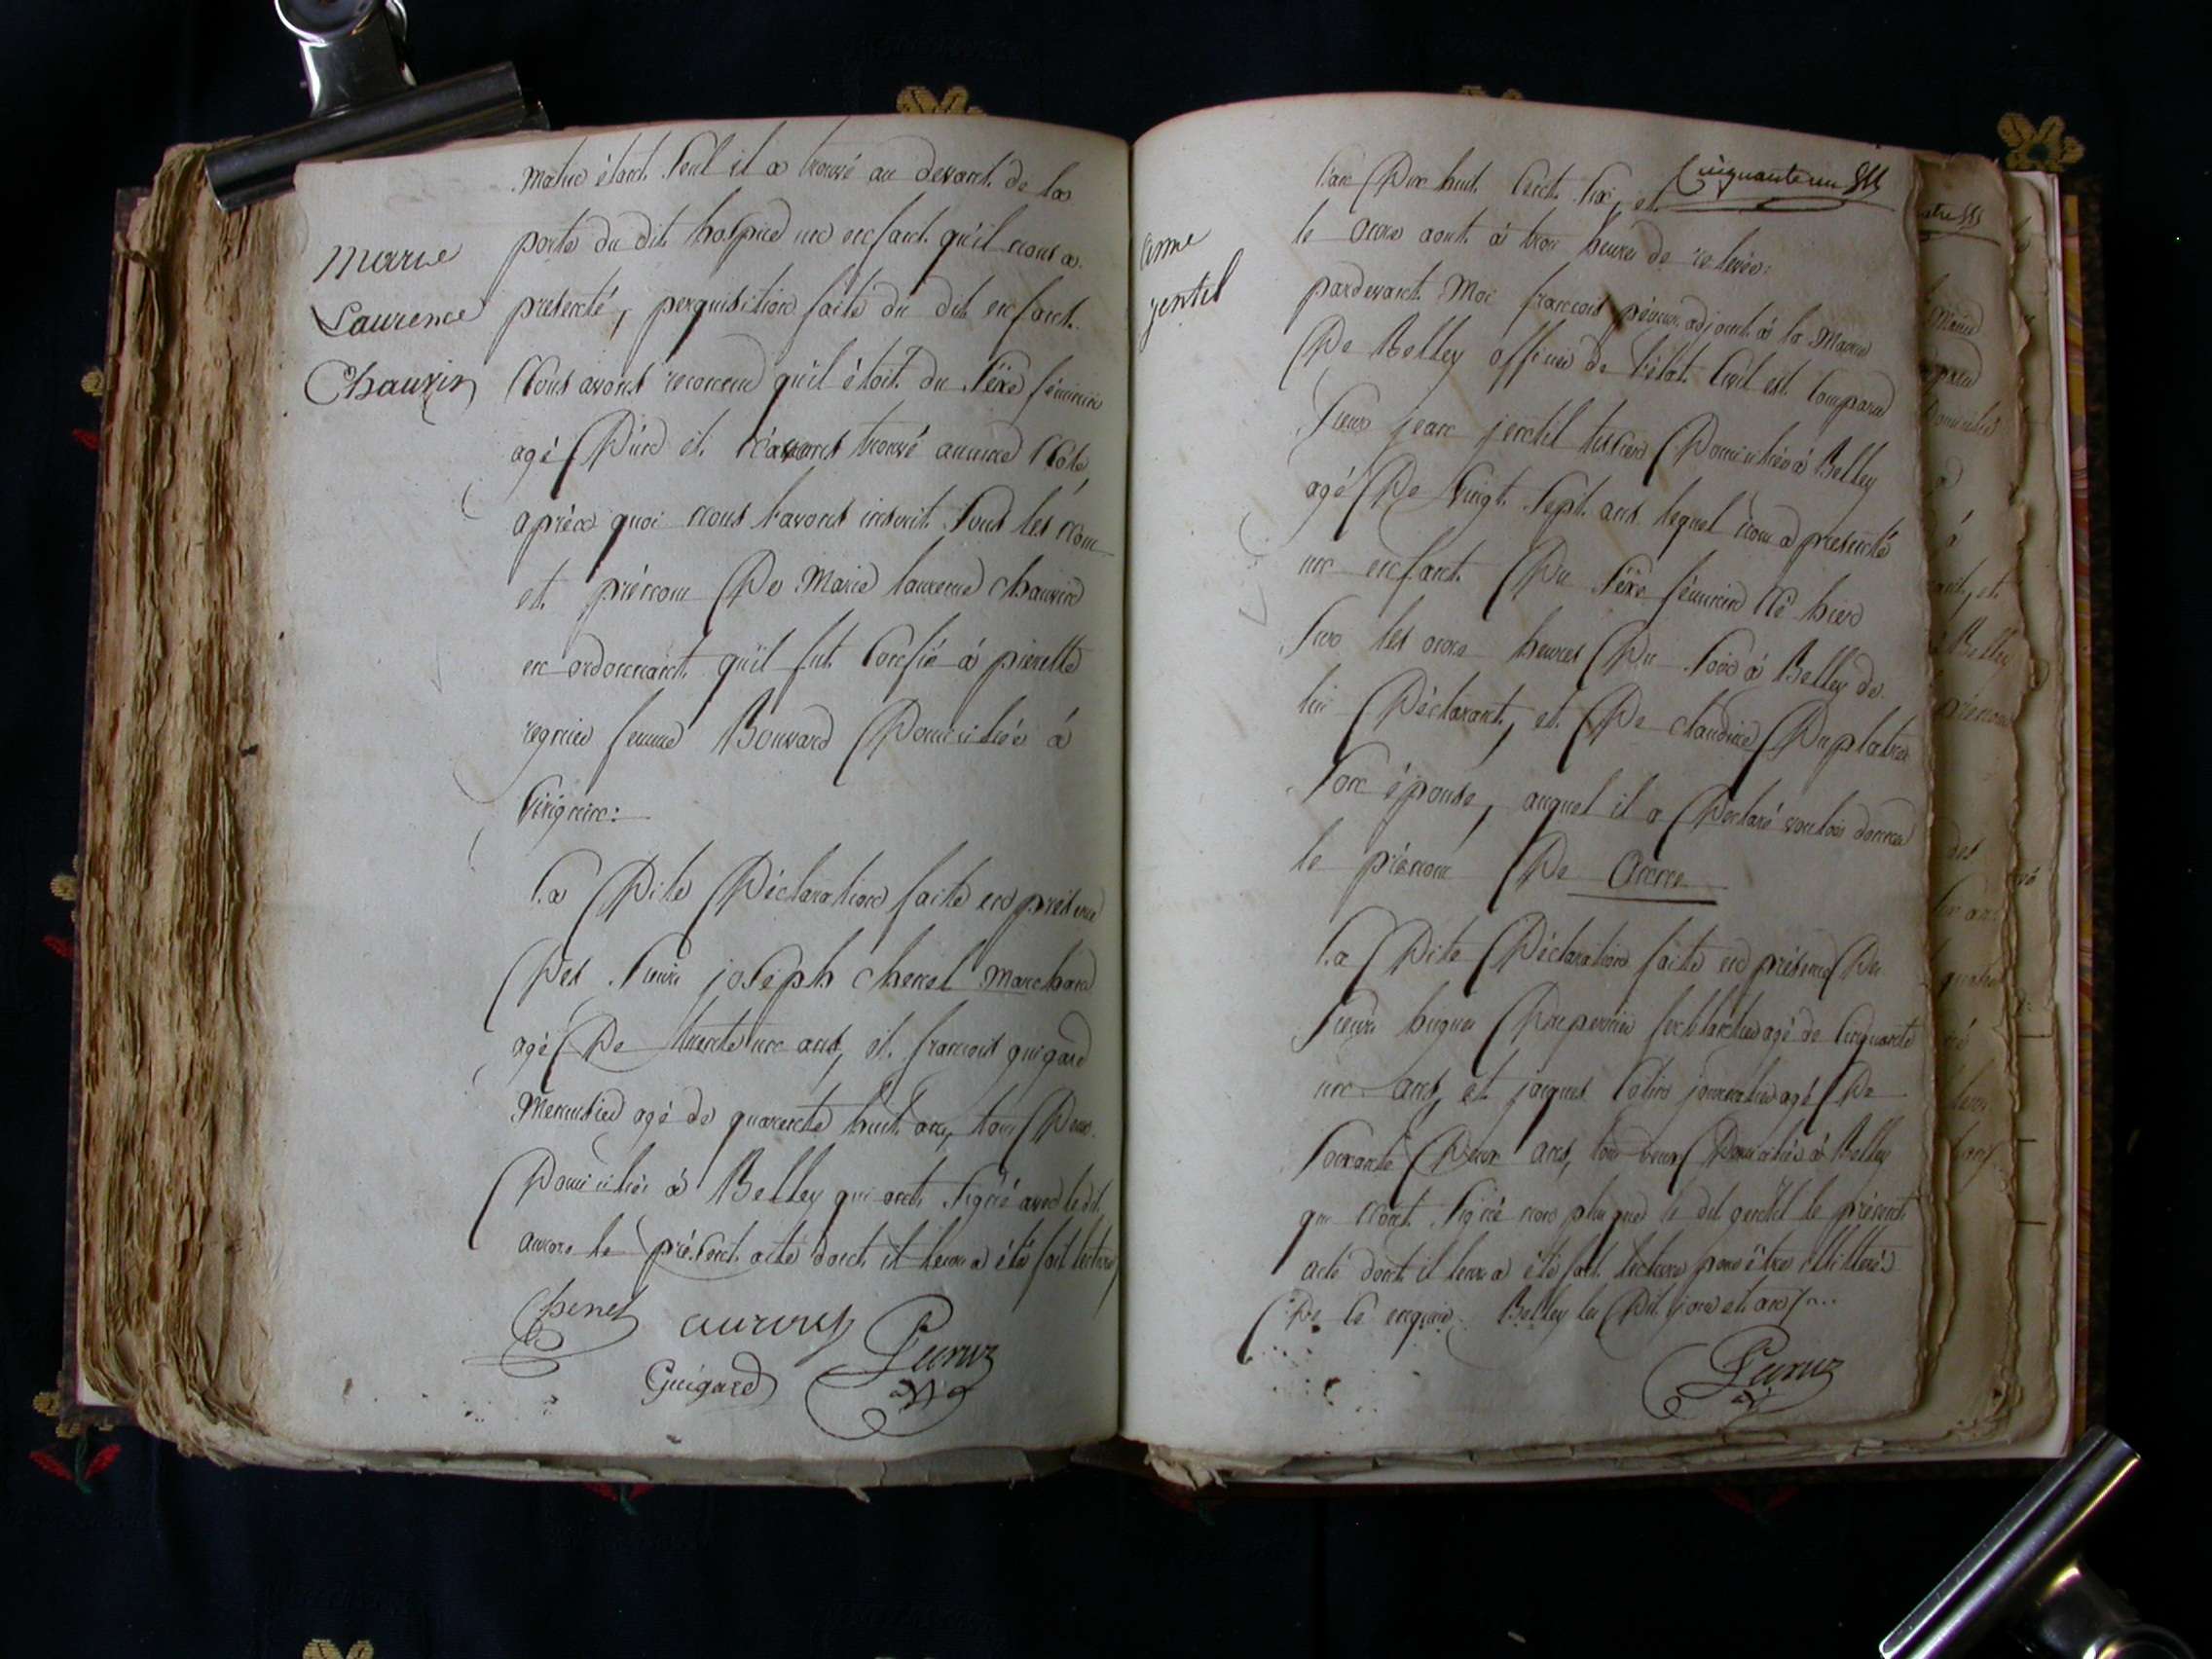 matin étant seul il a trouvé au devant de la
porte du dit hospice un enfant qu'il nous a
presenté, perquisition faite du dit enfant
Nous avons reconnu qu'il étoit du séxe féminin
agé d'un et n'avons trouvé aucune Note
aprèx quoi nous l'avons inscrit sous les nom
et prénom De Marie laurence chauvin
en ordonnant qu'il fut Confié à pierette
regnier femme Bouvard Domiciliée à
virignin:
La Dite Déclaration faite en présence
Des Sieurs joseph chenel Marchand
agé De trente un ans, et francois guigard
Menuisier agé de quarente huit ans, tous Deux
Domiciliés à Belley qui ont signé avec le dit
aurore le présent acte dont il leur a été fait lecture
Chenel
Guigard
Marie
Laurence
Chauvin
Cinquante un
L'an Dix huit Cent Six, et
le onze aout à trois heures de relevée:
pardevant Moi francois adjoint à la Mairie
De Belley officier de l'état Civil est Comparu
Sieur jean jentil Domicilié à Belley
agé De vingt sept ans lequel nous a presenté
un enfant Du séxe féminin Né hier
Sur les onze heures Du Soir à Belley de
lui Déclarant, et De claudine Duplatre
Son épouse, auquel il a Déclaré vouloir donner
le prénom De Anne
La Dite Déclaration faite en présence Du
Sieurs hugues ferblantier agé de Cinquante
un ans, et jacques journalier agé De
Soixante Deux ans, tous deux Domiciliés à Belley
qui n'ont signé non plus que le dit gentil le présent
acte dont il leur a été fait lecture pour être illitterés
De ce enquis Belley les Dit jour et an
anne
jentil